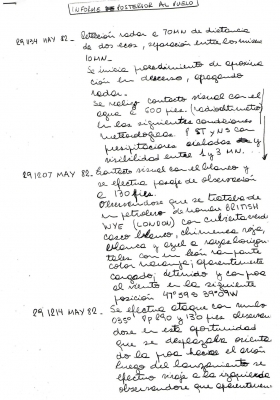 INFORME POSTERIOR AL VUELO
291134 MAY 82.- Detección radar a 70MN de distancia
de dos ecos, separación entre los mismos
10MN.-
Se inicia procedimiento de aproxima
ción en descenso, apagando
radar.-
Se realiza contacto visual con el
agua a 600 pies (radioaltímetro)
en las siguientes condiciones
meteorológicas. 8 ST y NS con
precipitaciones aisladas y
visibilidad entre 1 y 3 MN.
291207 MAY 82. Contacto visual con el blanco y
se efectúa pasaje de observación
a 130 pies.
Observándose que se trataba de
un petrolero de nombre BRITISH
WYE (LONDON) con cubierta verde
casco blanco, chimenea roja,
blanca y azul a rayas horizon
tales con un león rampante
color naranja; aparentemente
cargado; detenido y con proa
al viento en la siguiente
posición
291214 MAY 82.- Se efectúa ataque con rumbo
035° y 130 pies observan
dose en esta oportunidad
que se desplazaba orienta
do la proa hacia el avión
luego del lanzamiento se
efectúa viraje a la izquierda
observándose que aparentemen